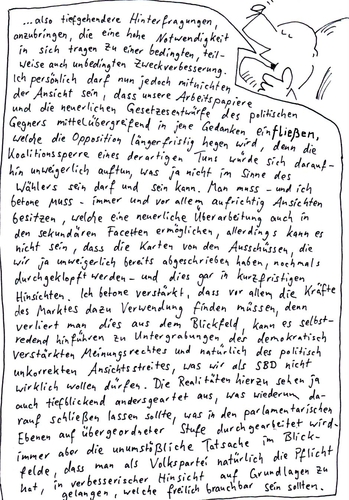 ...also tiefgehendere Hinterfragungen,
anzubringen, die eine hohe Notwendigkeit
in sich tragen zu einer bedingten, teil-
weise auch unbedingten Zweckverbesserung.
Ich persönlich darf nun jedoch mitnichten
der Ansicht sein, dass unsere Arbeitspapiere
und die neuerlichen Gesetzesentwürfe des politischen
Gegners mittelübergreifend in jene Gedanken einfließen,
welche die Opposition längerfristig hegen wird, denn die
Koalitionssperre eines derartigen Tuns würde sich darauf-
hin unweigerlich auftun, was ja nicht im Sinne des
Wählers sein darf und sein kann. Man muss – und ich
betone muss – immer und vor allem aufrichtig Ansichten
besitzen, welche eine neuerliche Überarbeitung auch in
den sekundären Facetten ermöglichen, allerdings kann es
nicht sein, dass die Karten von den Ausschüssen, die
wir ja unweigerlich bereits abgeschrieben haben, nochmals
durchgeklopft werden – und dies gar in kurzfristigen
Hinsichten. Ich betone verstärkt, dass vor allem die Kräfte
des Marktes dazu Verwendung finden müssen, denn
verliert man dies aus dem Blickfeld, kann es selbst-
redend hinführen zu Untergrabungen des demokratisch
verstärkten Meinungsrechtes und natürlich des politisch
unkorrekten Ansichtsstreites, was wir als SBD nicht
wirklich wollen dürfen. Die Realitäten hierzu sehen ja
auch tiefblickend andersgeartet aus, was wiederum da-
rauf schließen lassen sollte, was in den parlamentarischen
Ebenen auf übergeordneter Stufe durchgearbeitet wird –
immer aber die unumstößliche Tatsache im Blick-
felde, dass man als Volkspartei natürlich die Pflicht
hat, in verbesserischer Hinsicht auf Grundlagen zu
gelangen, welche freilich brauchbar sein sollten.